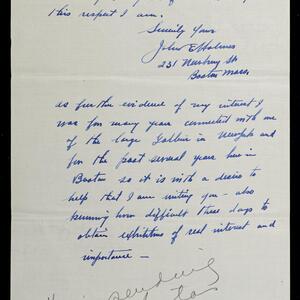 this respect I am.
Sincerely Yours
John E Holmes
231 Newbury St
Boston Mass.
as further evidence of my interest I
was for many years connected with one
of the large Galleries in New York and
for the past several years here in
Boston so it is with a desire to
help that I am writing you – also
knowing how difficult these days to
obtain exhibitions of real interest and
importance —